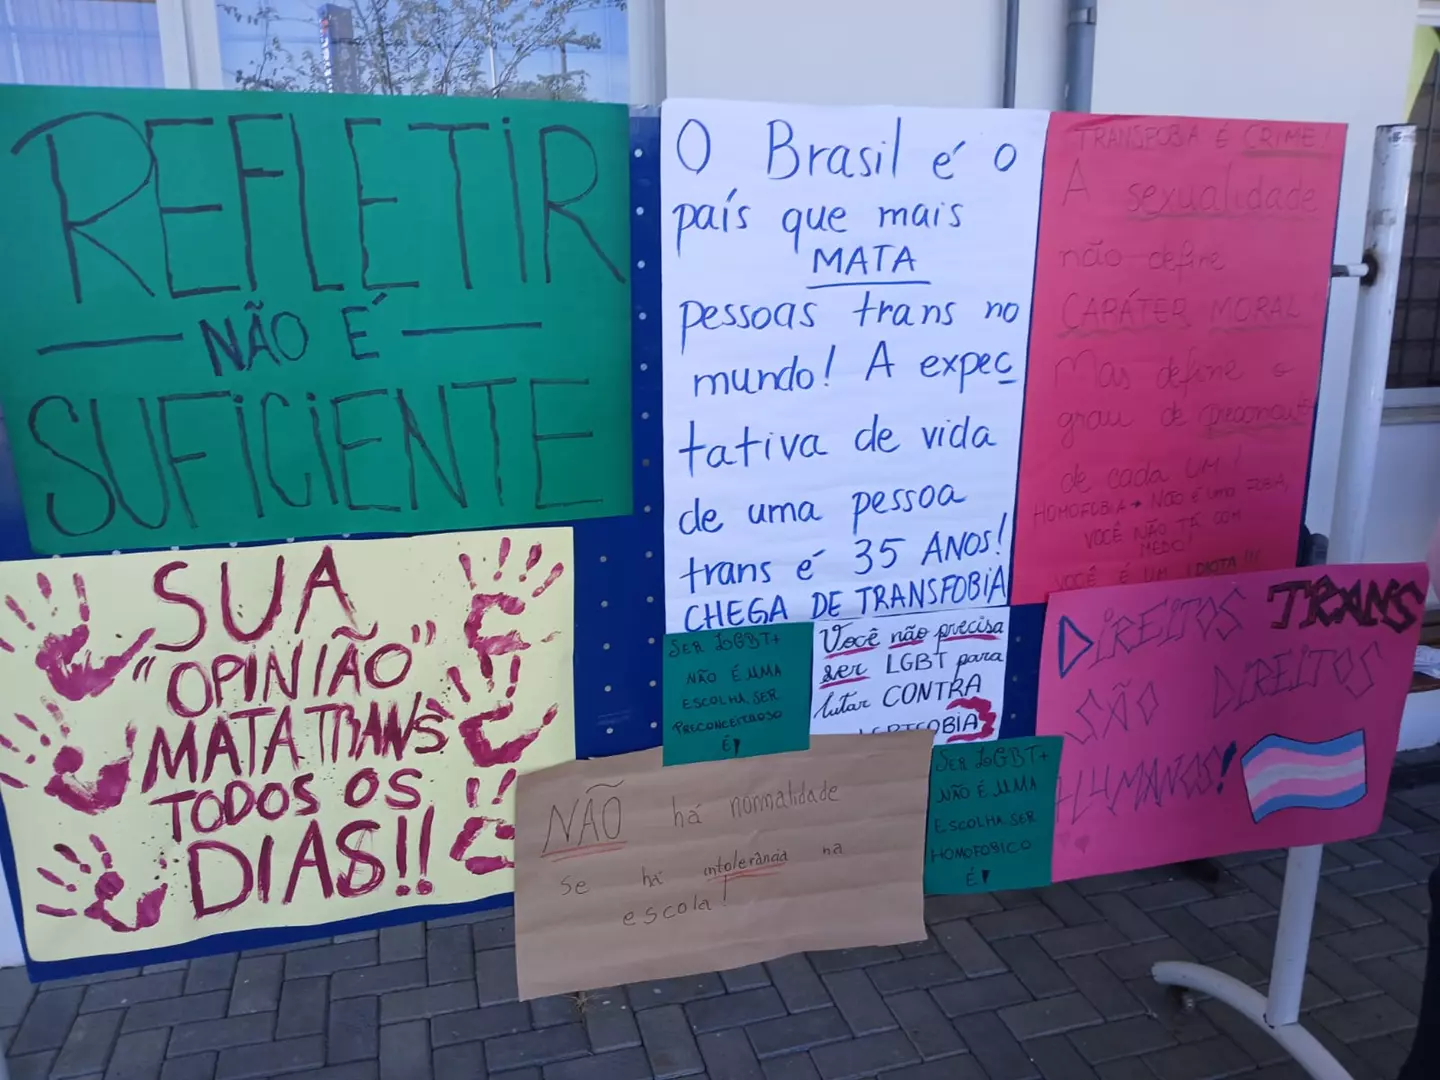 REFLETIR
NÃO É
SUFICIENTE
SUA
"OPINIÃO"
MATA TRANS
TODOS OS
DIAS!!
O Brasil é o
país que mais
MATA
pessoas trans no
mundo! A expec
tativa de vida
de uma pessoa
trans é 35 ANOS!
CHEGA DE TRANSFOBIA
TRANSFOBIA É CRIME!
A sexualidade
não define
CARÁTER MORAL!
Mas define o
grau de
de cada UM!
HOMOFOBIA → NÃO É UMA FOBIA,
VOCÊ NÃO TÁ COM
MEDO!
VOCÊ É UM IDIOTA!!!
SER LGBT+
NÃO É UMA
ESCOLHA, SER
PRECONCEITUOSO
É!
Você não precisa
ser LGBT para
lutar CONTRA
LGBTFOBIA
NÃO há normalidade
se há intolerância na
escola!
SER LGBT+
NÃO É UMA
ESCOLHA, SER
HOMOFOBICO
É!
DIREITOS TRANS
SÃO DIREITOS
HUMANOS!